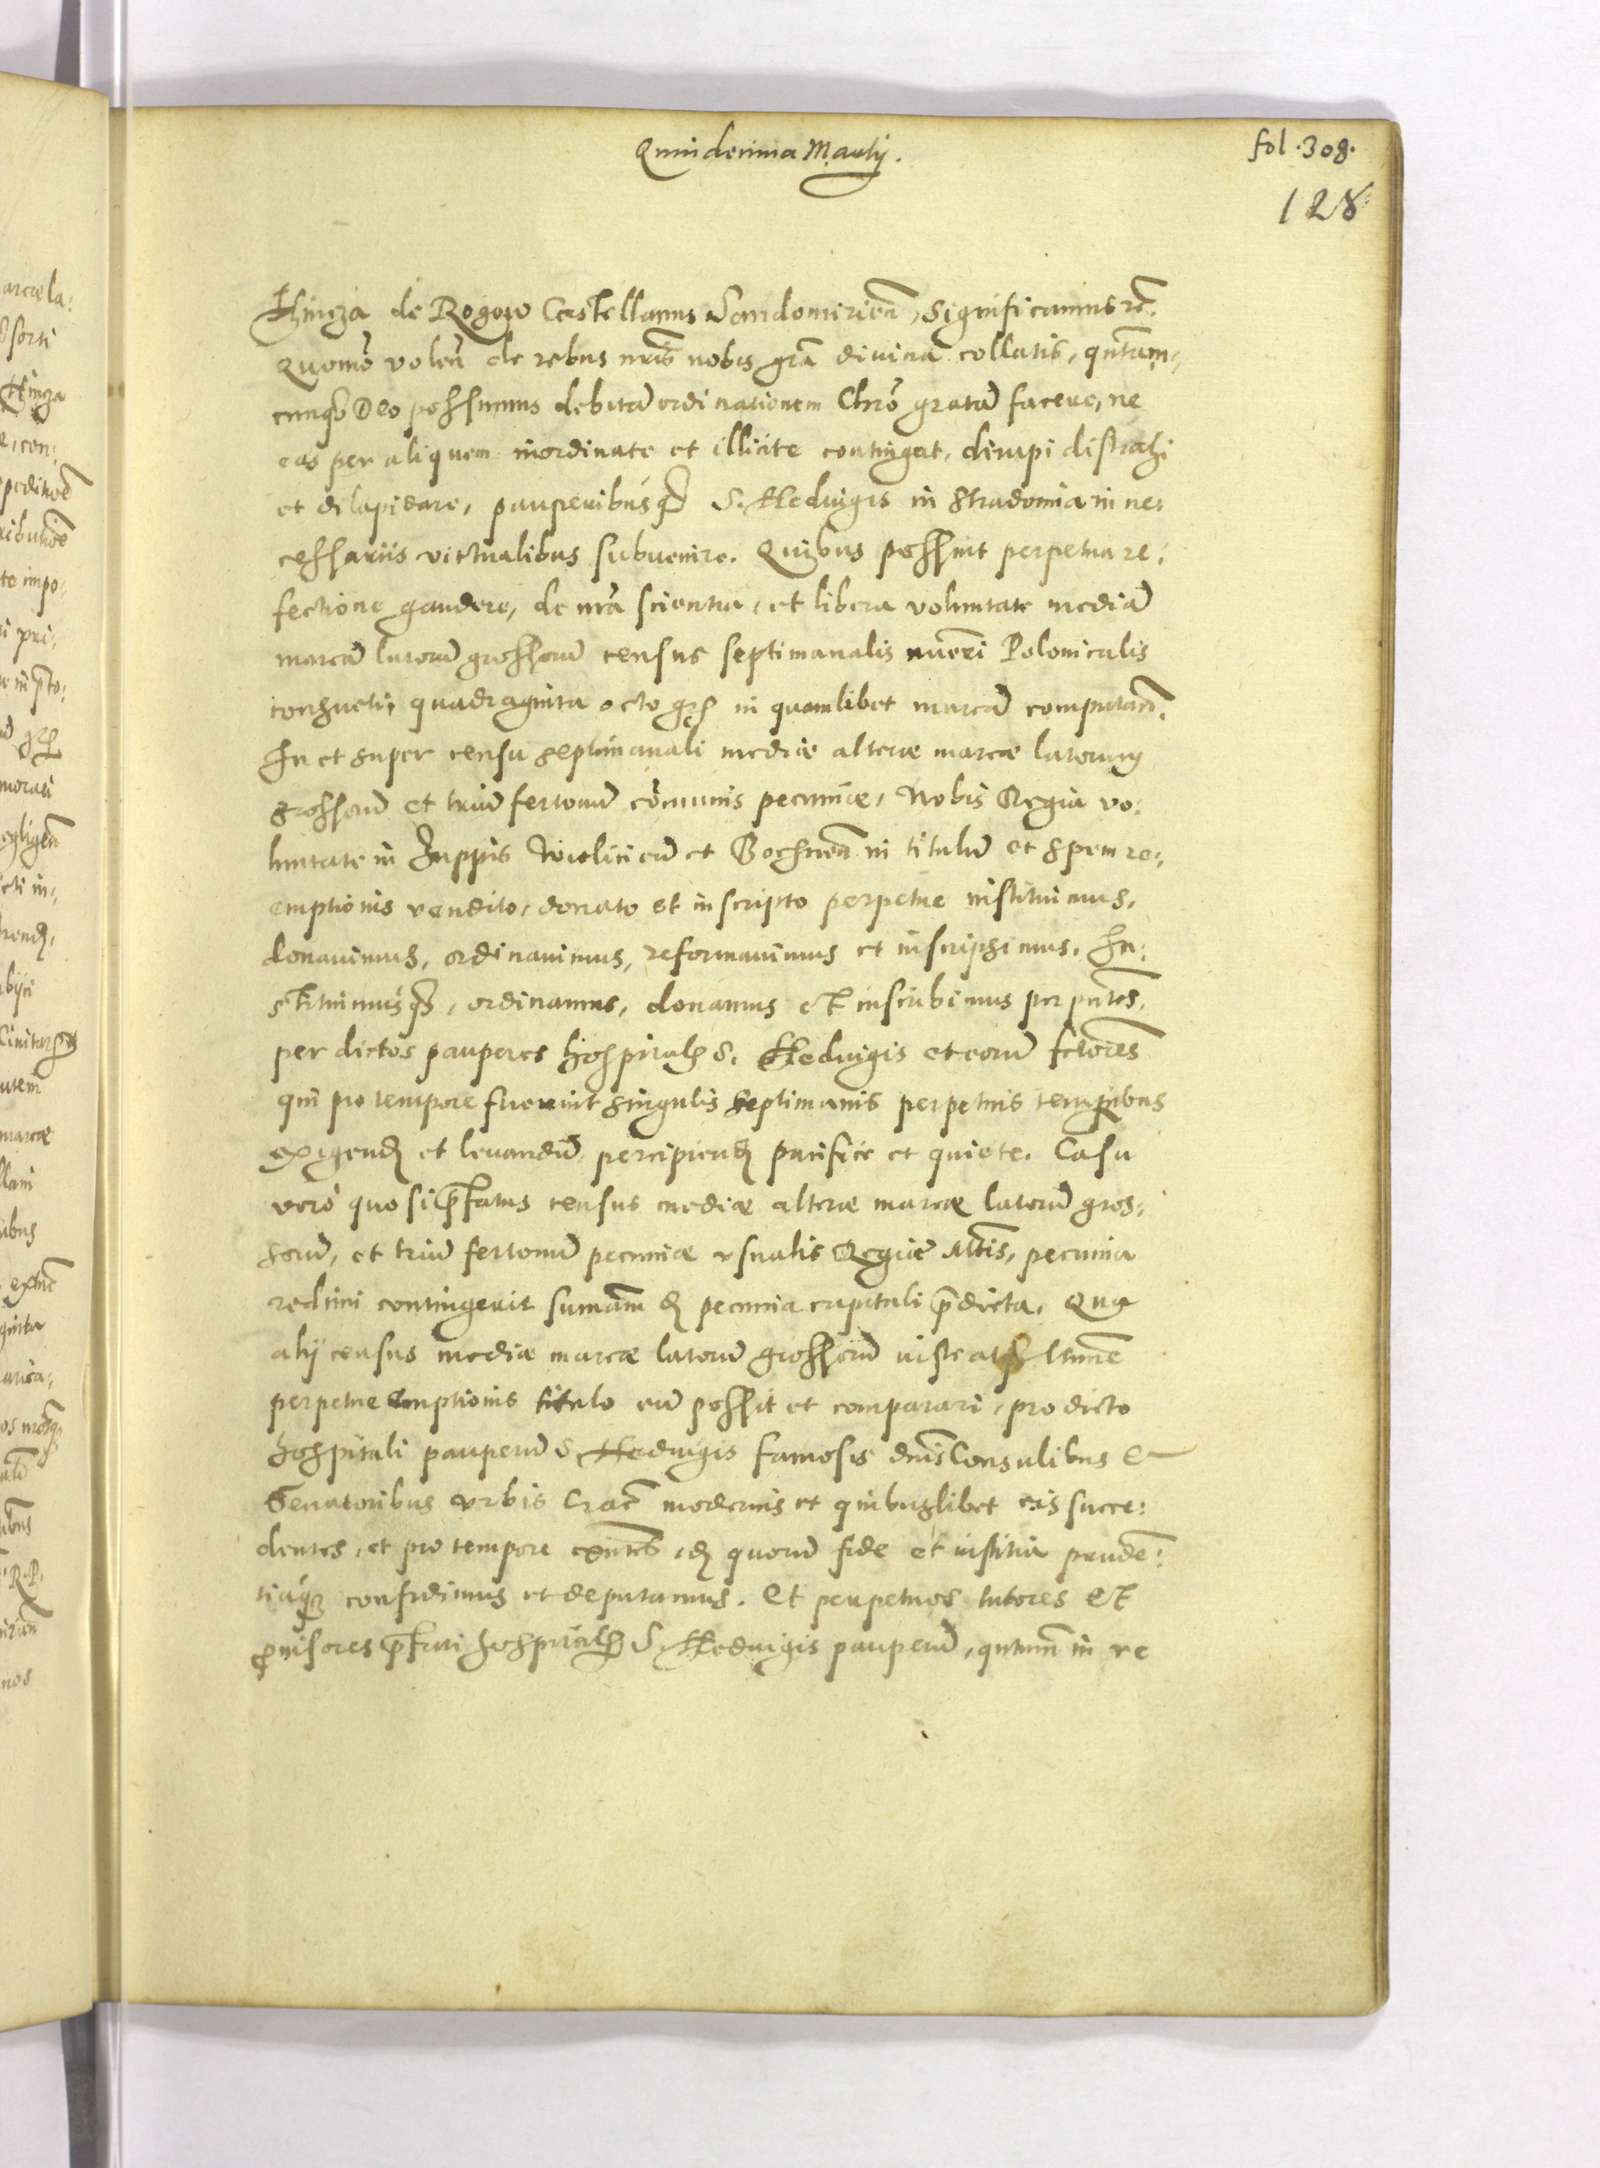 Quindecima Martij.
fol. 308.
128
Hincza de Rogow Castellanus Sandomirien̄, significamus rē.
Quomō volen̄ de rebus nr̄is nobis grā diuina collatis, qn̄tam-
cunq; Deo possumus debitā ordinationem Chrō gratā facere, ne
eas per aliquem inordinate et illicite contingat, diripi distrahi
et dilapidare, pauperibusq; S. Hedvigis in Stradomia in ne:
cessariis victualibus subvenire. Quibus possint perpetua re:
fectione gaudere, de nr̄a scientia, et libera voluntate mediā
marcā latorū grossorū census septimanalis nūeri Polonicalis
consueti, quadraginta octo gr̄ in quamlibet marcā computan̄.
In et super censu septimanali mediæ alteræ marcæ latorum
grossorū et triū fertonū cōmunis pecuniæ, Nobis Regia vo:
luntate in Zuppis Wieliciēn et Bochnēn in titulū et spem re:
emptionis vendito, donato et inscripto perpetue instituimus,
donauimus, ordinauimus, reformauimus et inscripsimus. In:
stituimusq;, ordinamus, donamus et inscribimus per pn̄tes,
per dictos pauperes hospitalis S. Hedvigis et eorū fctores
qui pro tempore fuerint singulis septimanis perpetuis temporibus
exigend et levandū percipiend pacifice et quiete. Casu
vero quo si p̄fatus census mediæ alteræ marcæ latorū gros:
sorū, et triū fertonū pecuniæ usualis Regiæ Mtis, pecunia
redimi contingerit sumam d pecunia capitali p̄dicta. Qua
alij census mediæ marcæ latorū grossorū
perpetue emptionis titulo emi possit et comparari, pro dicto
hospitali pauperū S. Hedvigis famosis dn̄is Consulibus &
Senatoribus Urbis Crac̄ modernis et quibuslibet eis succe:
dentes, et pro tempore exn̄tes, d quorū fide et iustitia prudē:
tiaq; confidimus et deputamus. Et perpetuos tutores et
p̄uisores p̄fati hospitalis S. Hedvigis pauperū, qn̄tum in re